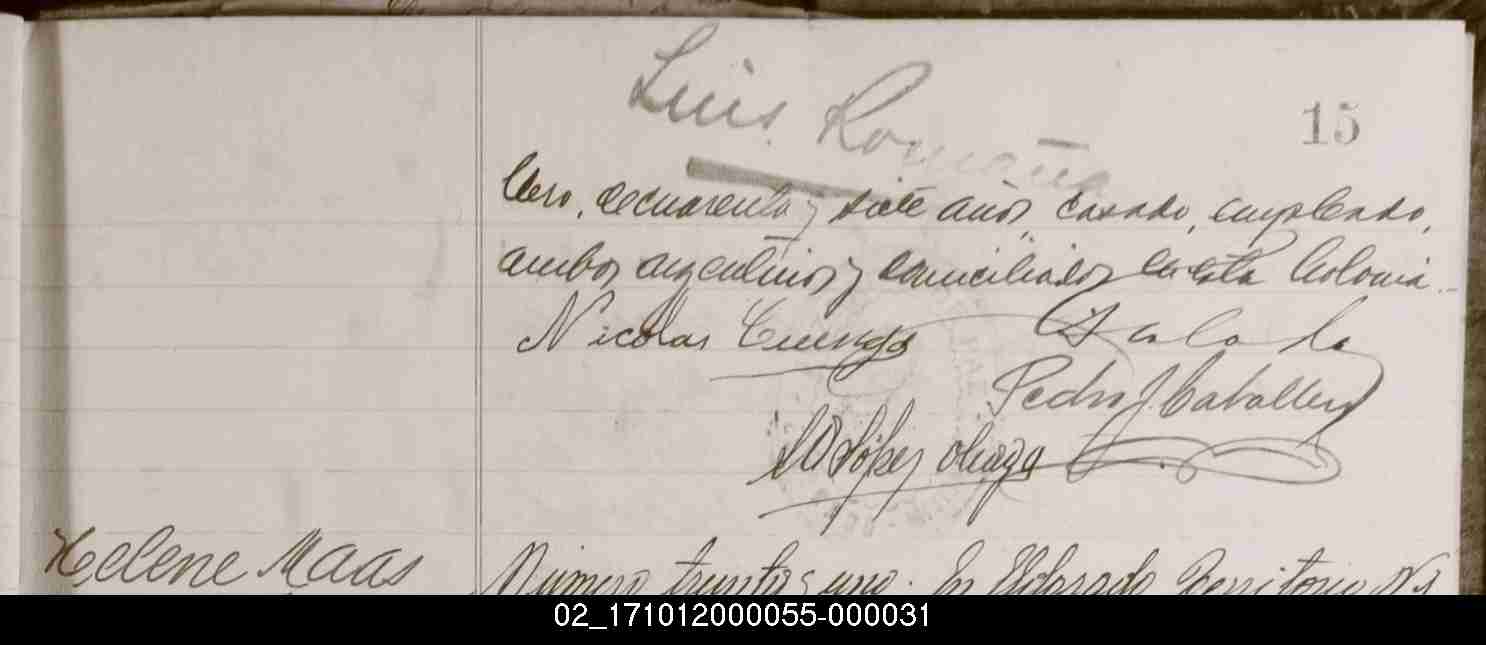 Luis Romaña
15
llero, de cuarenta y siete años, casado, empleado,
ambos argentinos y domiciliados en esta Colonia.
Nicolas Cuenga
Pedro J. Caballero
López
Helene Maas
Número treinta y uno. En Eldorado Territorio N.
02_171012000055-000031